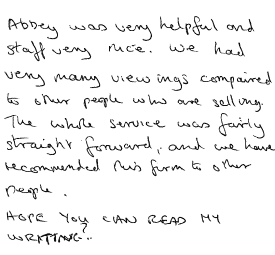 Abbey was very helpful and
staff very nice. We had
very many viewings compaired
to other people who are selling.
The whole service was fairly
straight forward, and we have
recommended this firm to other
people.
HOPE YOU CAN READ MY
WRITING?..